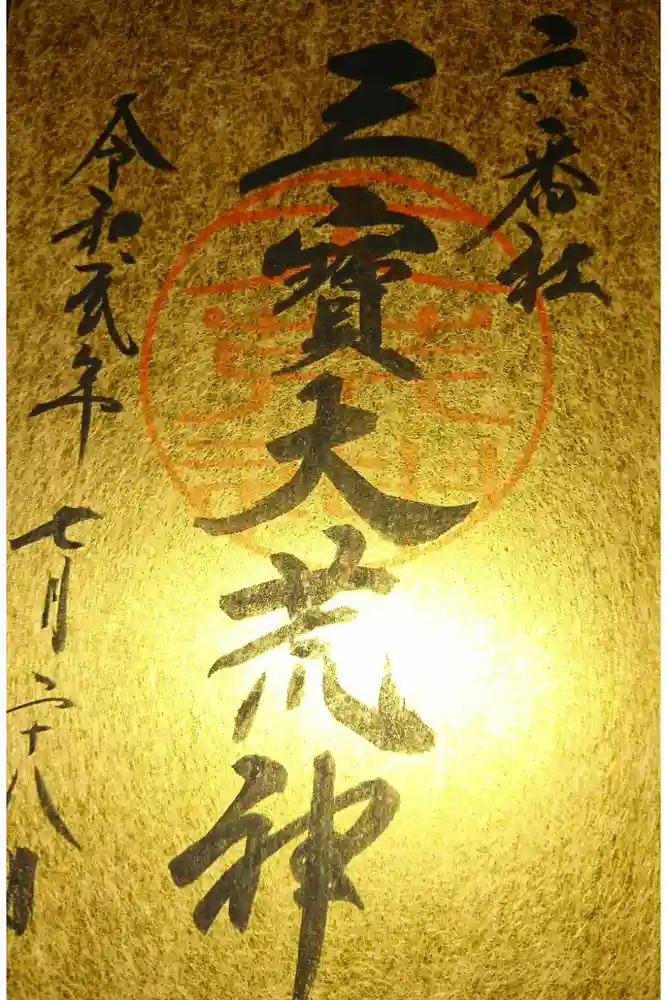 六番社
三寳大荒神
令和弐年
七月二十八日